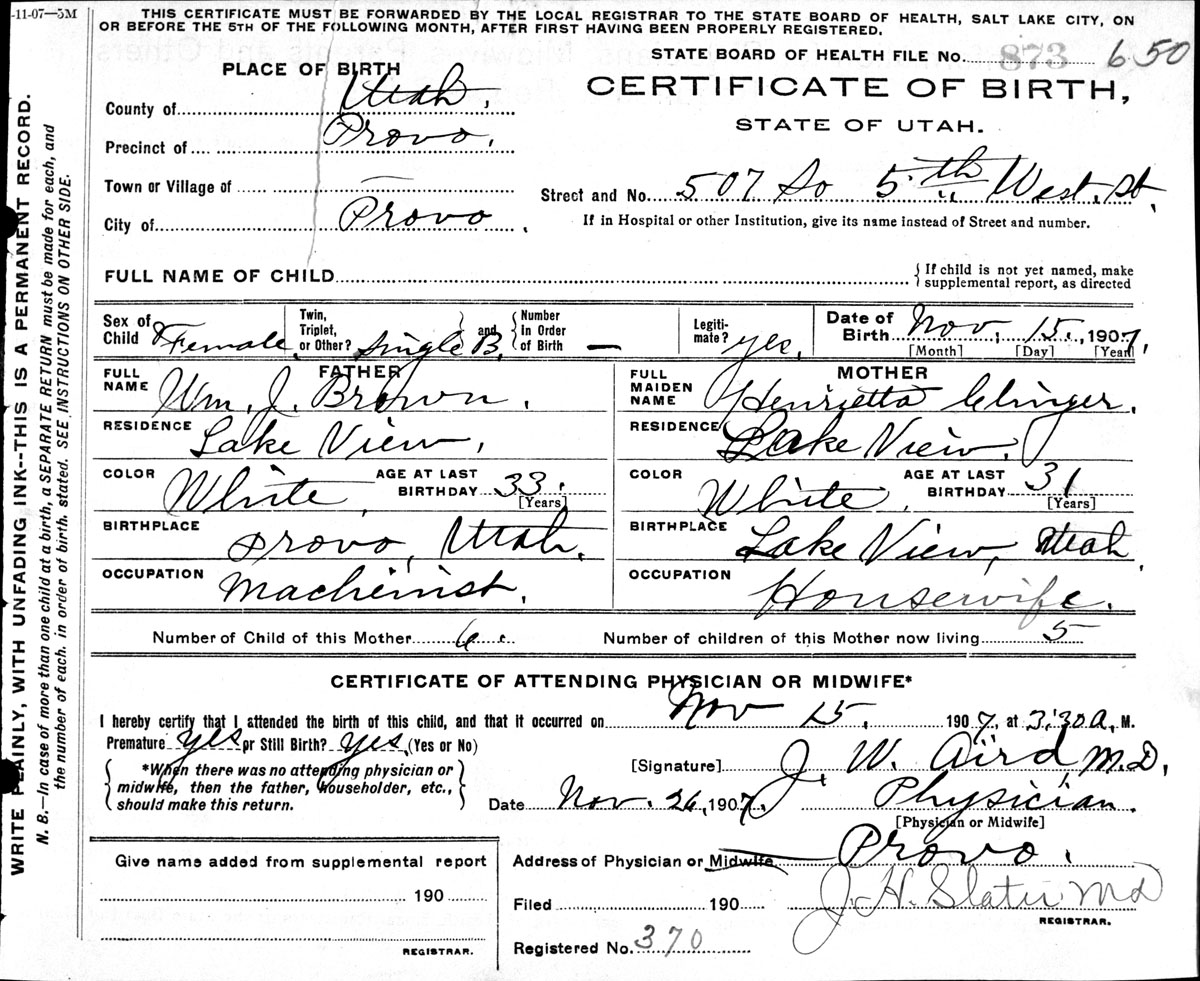 -11-07-5M
THIS CERTIFICATE MUST BE FORWARDED BY THE LOCAL REGISTRAR TO THE STATE BOARD OF HEALTH, SALT LAKE CITY, ON
OR BEFORE THE 5TH OF THE FOLLOWING MONTH, AFTER FIRST HAVING BEEN PROPERLY REGISTERED.
STATE BOARD OF HEALTH FILE NO. 873 650
PLACE OF BIRTH
CERTIFICATE OF BIRTH,
STATE OF UTAH.
County of Utah,
Precinct of Provo.
Town or Village of —
City of Provo.
Street and No. 507 So 5th West. St.
If in Hospital or other Institution, give its name instead of Street and number.
FULL NAME OF CHILD { If child is not yet named, make
supplemental report, as directed
Sex of Child Female Twin, Triplet, or Other? Single B. and Number In Order of Birth — Legitimate? yes. Date of Birth Nov. 15, 1907,
[Month] [Day] [Year]
FATHER
FULL NAME Wm. J. Brown.
RESIDENCE Lake View.
COLOR White AGE AT LAST BIRTHDAY 33. [Years]
BIRTHPLACE Provo, Utah.
OCCUPATION Machinist.
MOTHER
FULL MAIDEN NAME Henrietta Clinger.
RESIDENCE Lake View.
COLOR White. AGE AT LAST BIRTHDAY 31 [Years]
BIRTHPLACE Lake View, Utah
OCCUPATION Housewife.
Number of Child of this Mother 6 Number of children of this Mother now living 5
CERTIFICATE OF ATTENDING PHYSICIAN OR MIDWIFE*
I hereby certify that I attended the birth of this child, and that it occurred on Nov 15, 1907, at 3:30 A. M.
Premature yes or Still Birth? yes (Yes or No)
*When there was no attending physician or
midwife, then the father, householder, etc.,
should make this return.
[Signature] J. W. Aird M.D.
Date Nov. 26, 1907. Physician.
[Physician or Midwife]
Address of Physician or Midwife Provo.
Filed 190 J. H. Slater MD
REGISTRAR.
Registered No. 370
Give name added from supplemental report
190
REGISTRAR.
WRITE PLAINLY, WITH UNFADING INK--THIS IS A PERMANENT RECORD.
N. B.—In case of more than one child at a birth, a SEPARATE RETURN must be made for each, and
the number of each. in order of birth. stated. SEE INSTRUCTIONS ON OTHER SIDE.